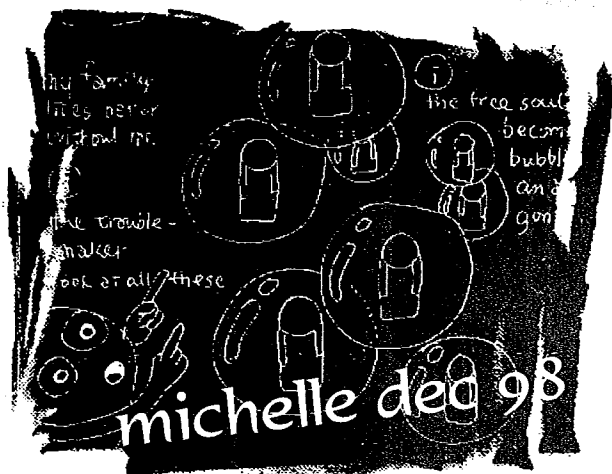 my family
lives better
without me
the trouble-
maker
look at all these
i
the free soul
becom
bubbl
and
gon
michelle dec 98